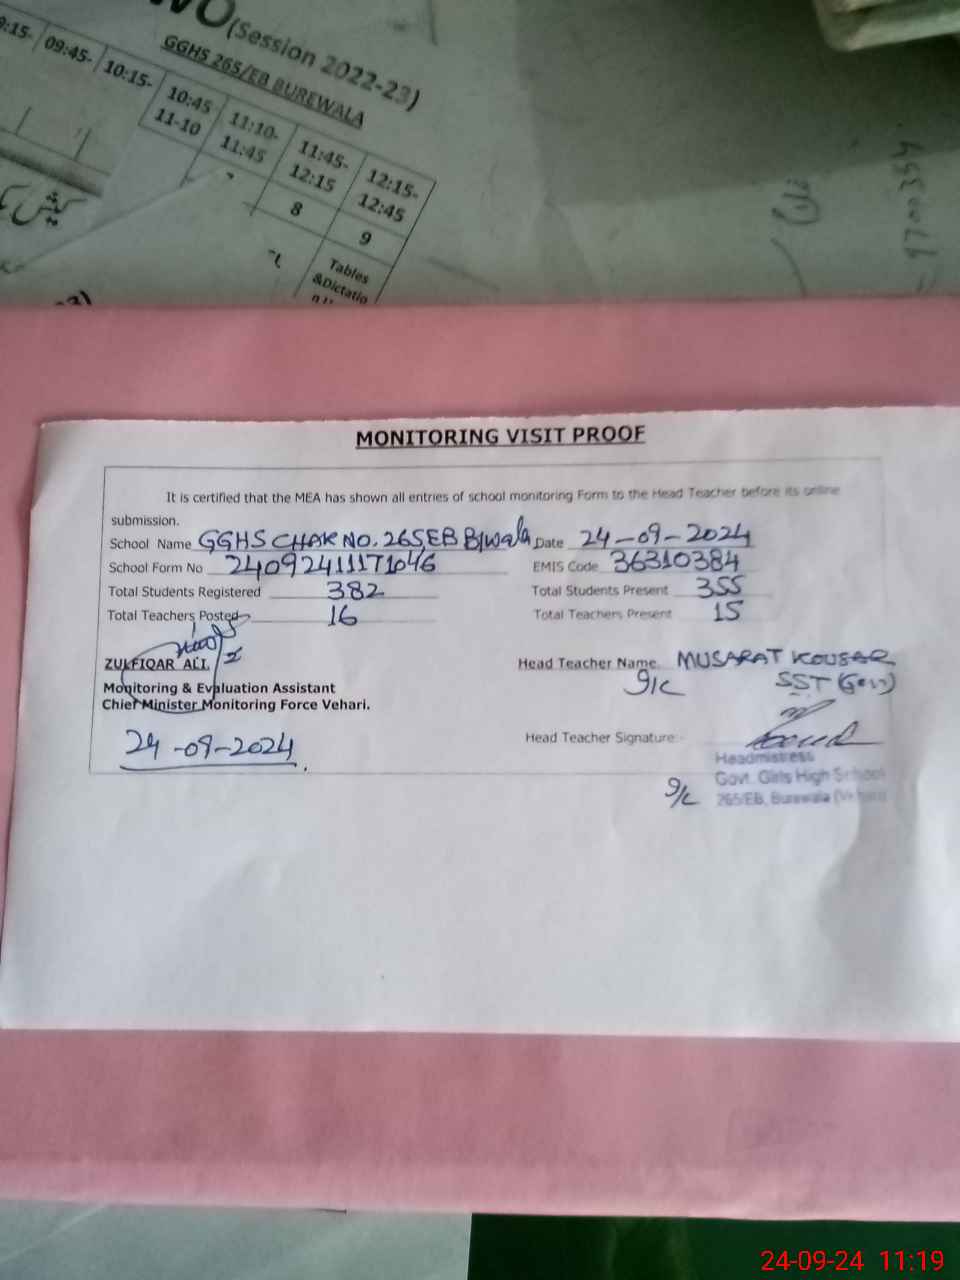 WO (Session 2022-23)
GGHS 265/EB BUREWALA
9:15- 09:45- 10:15- 10:45 11-10 11:10- 11:45 11:45- 12:15 12:15- 12:45
8 9
Tables
&Dictatio
MONITORING VISIT PROOF
It is certified that the MEA has shown all entries of school monitoring Form to the Head Teacher before its online
submission.
School Name GGHS CHAK NO. 265EB B/wala Date 24-09-2024
School Form No 24092411171046 EMIS Code 36310384
Total Students Registered 382 Total Students Present 355
Total Teachers Posted 16 Total Teachers Present 15
ZULFIQAR ALI Head Teacher Name MUSARAT KOUSAR
Monitoring & Evaluation Assistant I/C SST (Gen)
Chief Minister Monitoring Force Vehari.
24-09-2024 Head Teacher Signature:-
Headmistress
Govt. Girls High School
I/C 265/EB, Burewala (Vehari)
24-09-24 11:19